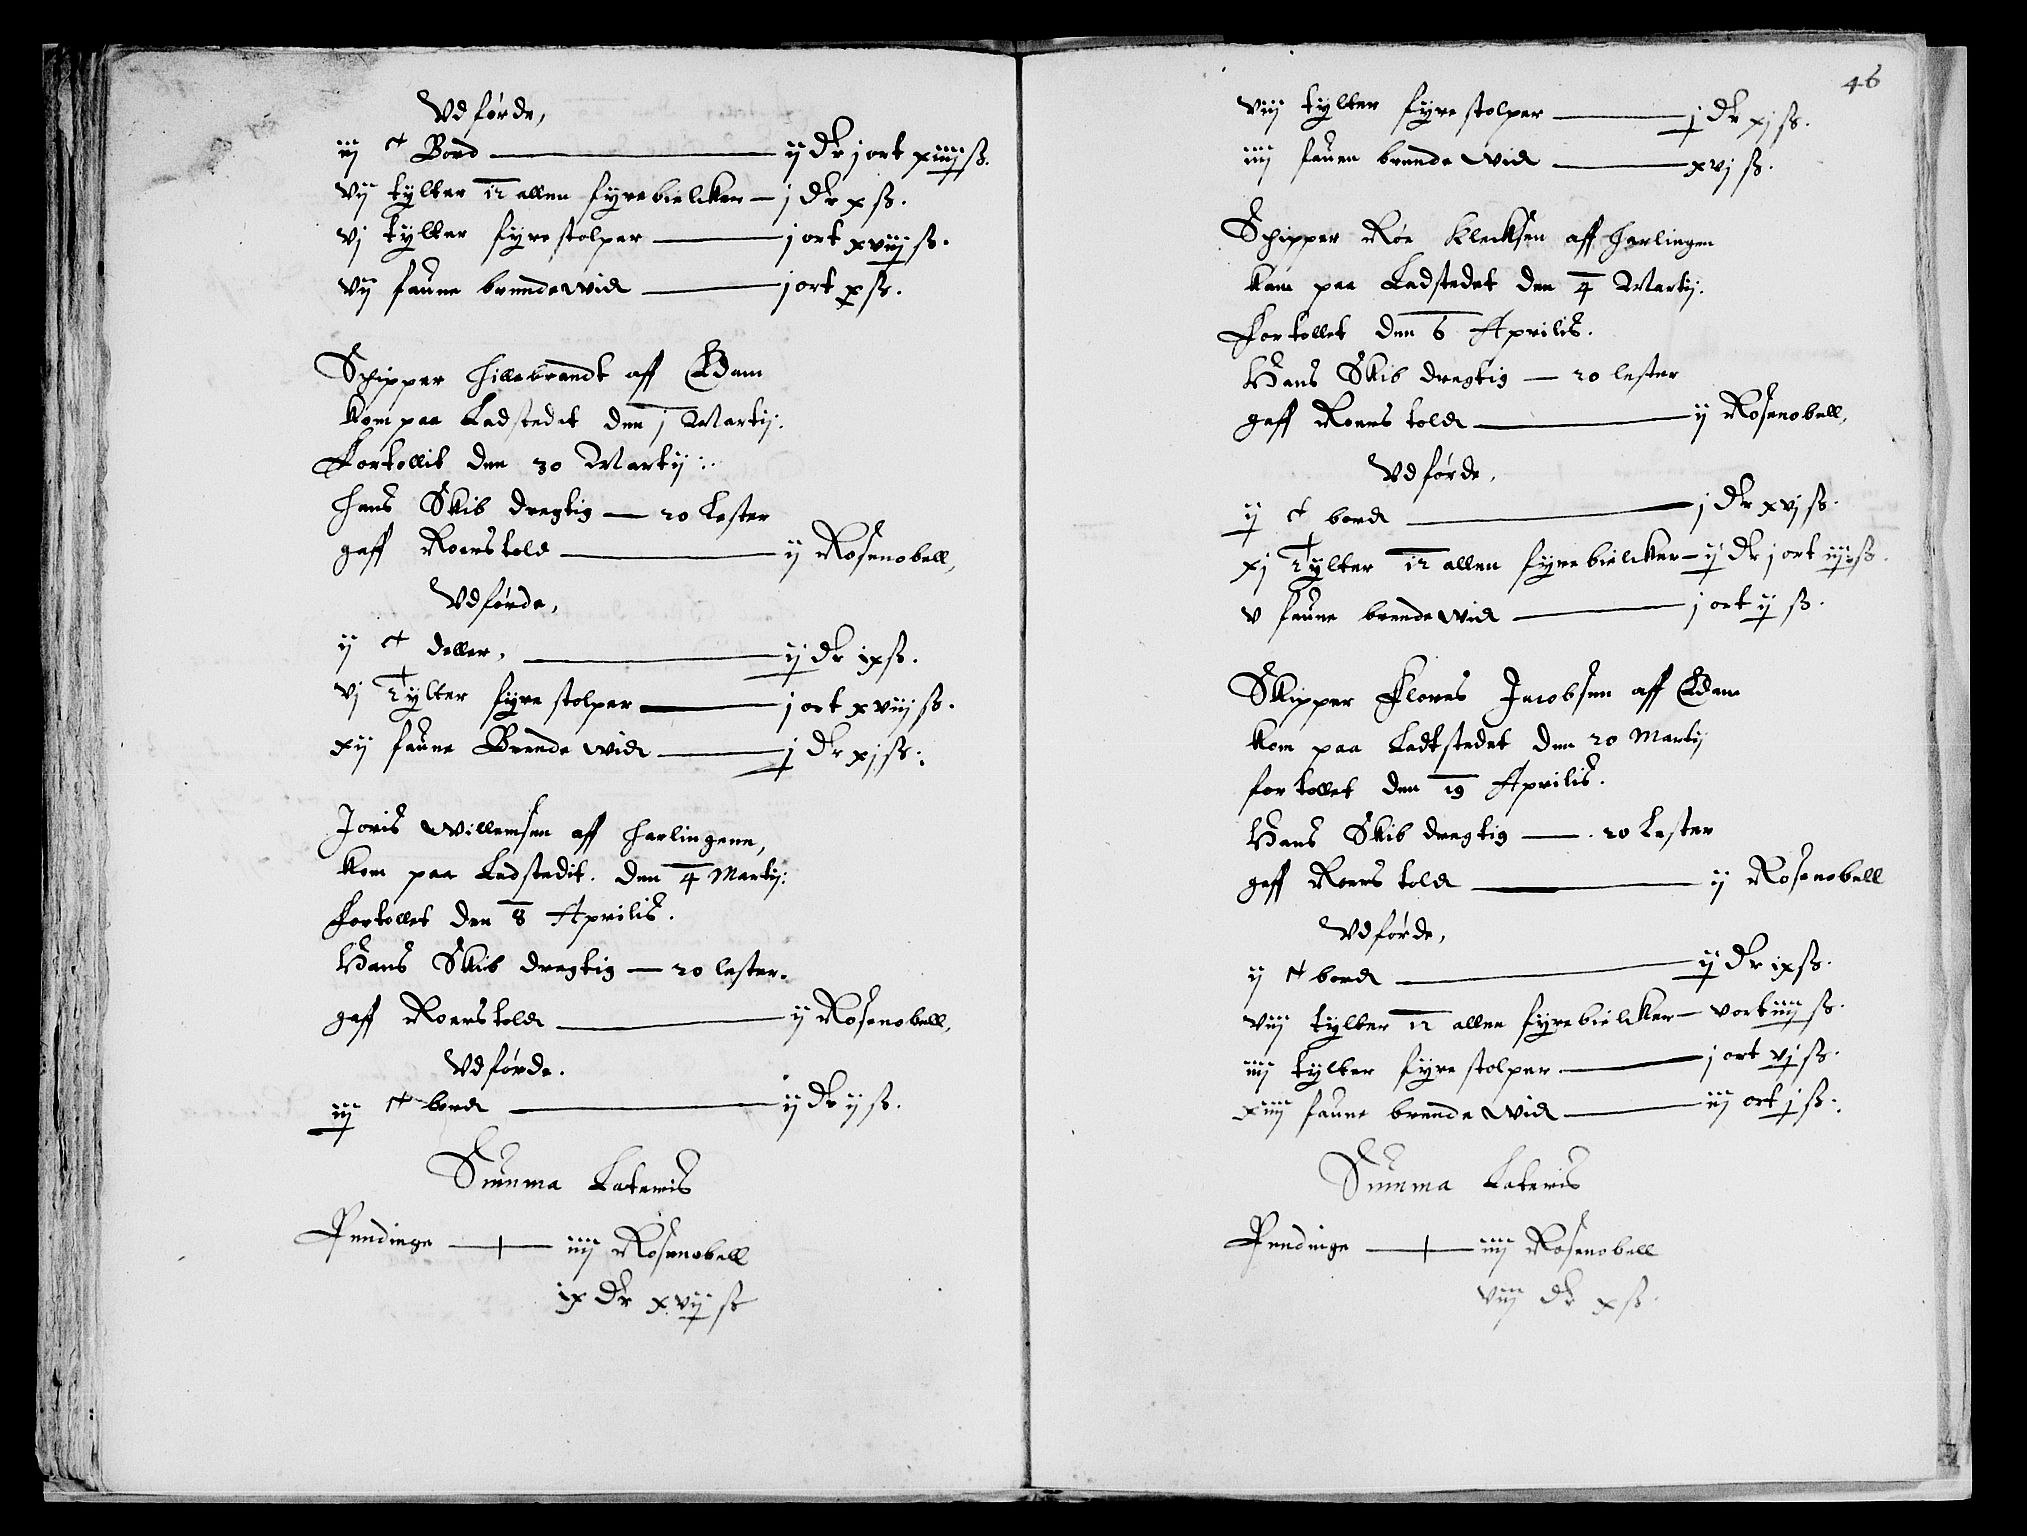 Vdførde,
iij ct Bord — ij dr j ort xiiij ß.
vij tylter 12 allen fyrebielcker — j dr x ß.
vj tylter fyrestolper — j ort xviij ß.
vij faune brendewid — j ort x ß.
Schipper Hillebrandt aff Edam
kom paa Ladstedet den 1 Martij.
Fortollit den 30 Martij.
Hans Skib dregtig — 20 Lester
gaff Roerstold — ij Rosenobell,
Vdførde,
ij ct deller, — ij dr ix ß.
vj Tylter fyrestolper — j ort xviij ß.
xij faune Brendewid — j dr xj ß.
Joris Willemsen aff Harlingenn,
kom paa Ladstedit. den 4 Martij.
Fortollet den 8 Aprilis.
Hans Skib dregtig — 20 lester.
gaff Roerstold — ij Rosenobell,
Vdførde.
iij ct bord — ij dr ij ß.
Summa Lateris
Pendinge — iiij Rosenobell
ix dr xvij ß
46
viij tylter fyrestolper — j dr xj ß.
iiij fauen brendewid — xvj ß.
Schipper Røe Klecksen aff Harlingen
kam paa Ladstedet den 4 Martij.
Fortollet den 6 Aprilis.
Hans Skib dregtig — 20 lester
gaff Roerstold — ij Rosenobell,
Vdførde,
ij ct bord — j dr xvj ß.
xj Tylter 12 allen fyrebielcker — ij dr j ort iij ß.
v faune brendewid — j ort ij ß.
Skipper Flores Jacobsen aff Edam
kom paa Ladtstedet den 20 Martij
fortollet den 19 Aprilis.
Hans Skib dregtig — 20 Lester
gaff Roerstold — ij Rosenobell
Vdførde,
ij ct bord — ij dr ix ß.
viij tylter 12 allen fyrebielcker — v ort iiij ß.
iiij tylter fyrestolper — j ort vj ß.
xiiij faune brendewid — iij ort j ß.
Summa Lateris
Pendinge — iiij Rosenobell
viij dr x ß.